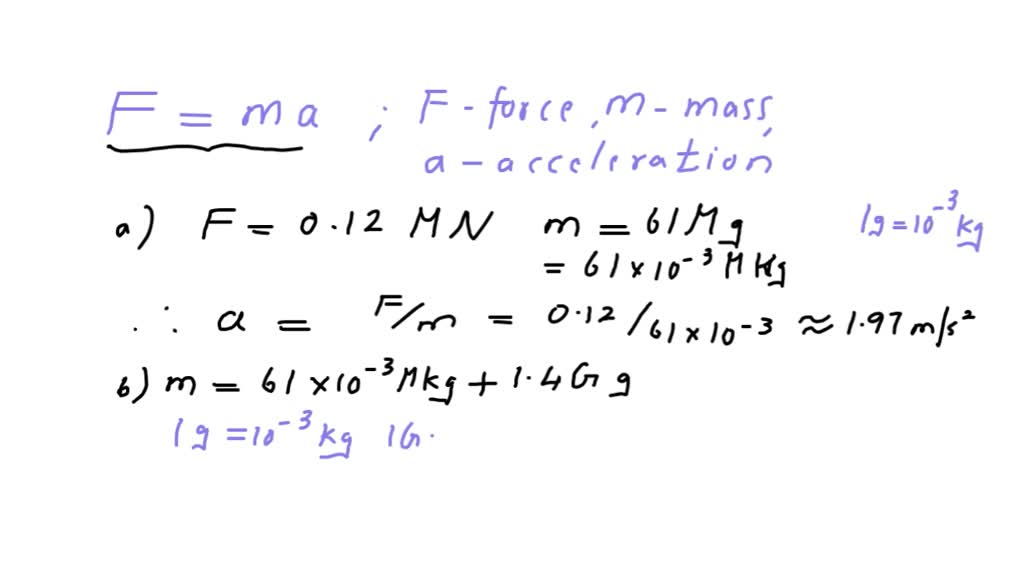 F = ma ; F - force, m - mass,
a - acceleration
a) F = 0.12 MN m = 61 Mg 1g = 10⁻³ kg
= 61 × 10⁻³ M Kg
∴ a = F/m = 0.12 / 61 × 10⁻³ ≈ 1.97 m/s²
b) m = 61 × 10⁻³ Mkg + 1.4 G g
1g = 10⁻³ kg 1G.